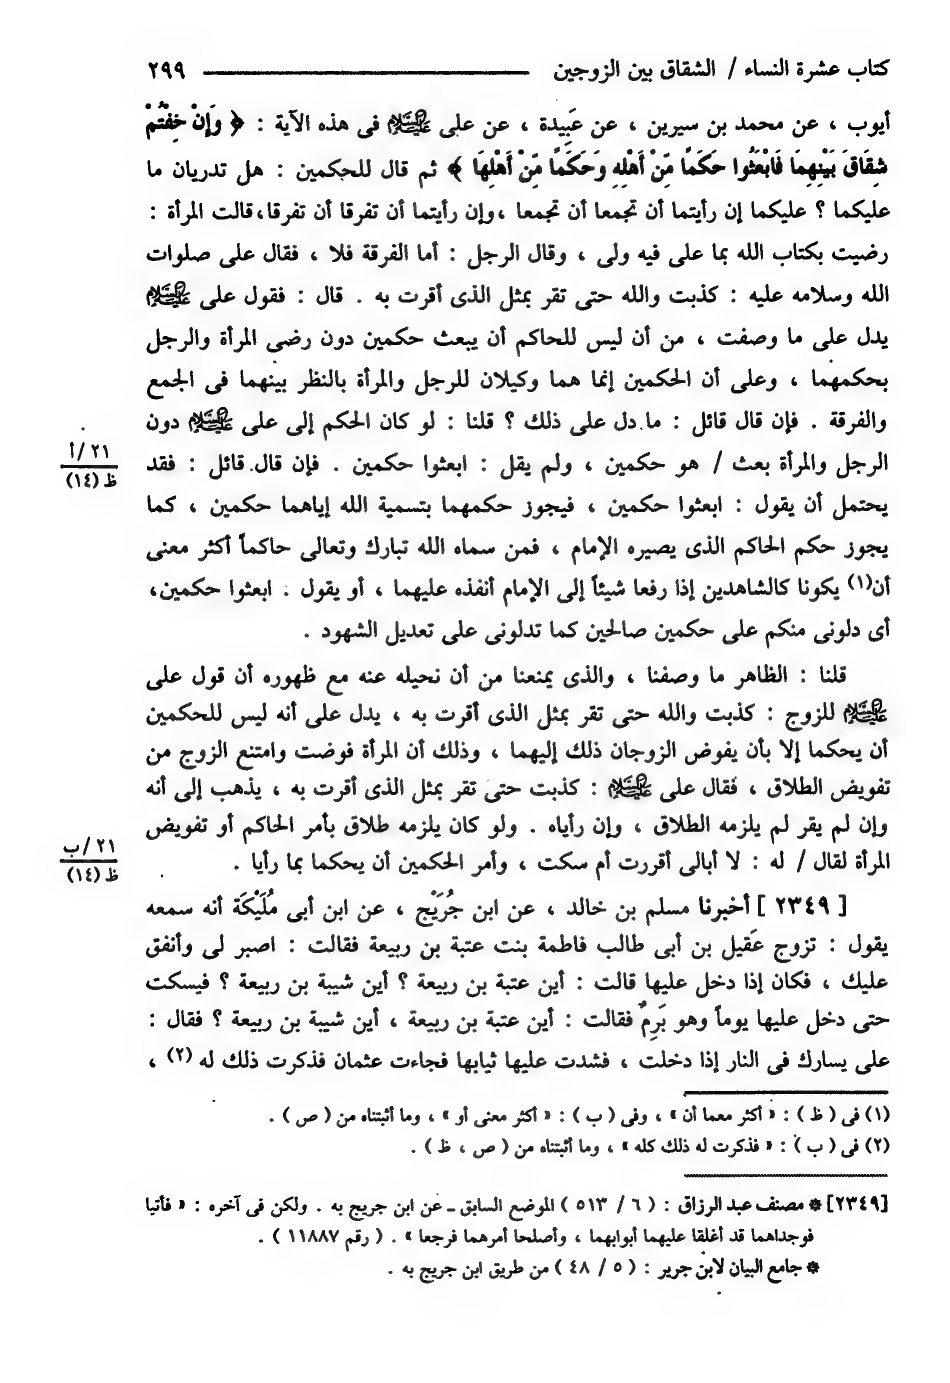 كتاب عشرة النساء / الشقاق بين الزوجين ــــــــــــــــ ٢٩٩
أيوب ، عن محمد بن سيرين ، عن عَبِيدة ، عن على عليه السلام فى هذه الآية : ﴿ وَإِنْ خِفْتُمْ
شِقَاقَ بَيْنِهِمَا فَابْعَثُوا حَكَمًا مِّنْ أَهْلِهِ وَحَكَمًا مِّنْ أَهْلِهَا ﴾ ثم قال للحكمين : هل تدريان ما
عليكما ؟ عليكما إن رأيتما أن تجمعا أن تجمعا ،وإن رأيتما أن تفرقا أن تفرقا،قالت المرأة :
رضيت بكتاب الله بما على فيه ولى ، وقال الرجل : أما الفرقة فلا ، فقال على صلوات
الله وسلامه عليه : كذبت والله حتى تقر بمثل الذى أقرت به . قال : فقول على عليه السلام
يدل على ما وصفت ، من أن ليس للحاكم أن يبعث حكمين دون رضى المرأة والرجل
بحكمهما ، وعلى أن الحكمين إنما هما وكيلان للرجل والمرأة بالنظر بينهما فى الجمع
والفرقة . فإن قال قائل : ما دل على ذلك ؟ قلنا : لو كان الحكم إلى على عليه السلام دون
الرجل والمرأة بعث / هو حكمين ، ولم يقل : ابعثوا حكمين . فإن قال قائل : فقد
٢١ /أ
ظ (١٤)
يحتمل أن يقول : ابعثوا حكمين ، فيجوز حكمهما بتسمية الله إياهما حكمين ، كما
يجوز حكم الحاكم الذى يصيره الإمام ، فمن سماه الله تبارك وتعالى حاكماً أكثر معنى
أن(١) يكونا كالشاهدين إذا رفعا شيئاً إلى الإمام أنفذه عليهما ، أو يقول : ابعثوا حكمين،
أى دلونى منكم على حكمين صالحين كما تدلونى على تعديل الشهود .
قلنا : الظاهر ما وصفنا ، والذى يمنعنا من أن نحيله عنه مع ظهوره أن قول على
عليه السلام للزوج : كذبت والله حتى تقر بمثل الذى أقرت به ، يدل على أنه ليس للحكمين
أن يحكما إلا بأن يفوض الزوجان ذلك إليهما ، وذلك أن المرأة فوضت وامتنع الزوج من
تفويض الطلاق ، فقال على عليه السلام : كذبت حتى تقر بمثل الذى أقرت به ، يذهب إلى أنه
وإن لم يقر لم يلزمه الطلاق ، وإن رأياه . ولو كان يلزمه طلاق بأمر الحاكم أو تفويض
المرأة لقال / له : لا أبالى أقررت أم سكت ، وأمر الحكمين أن يحكما بما رأيا .
٢١ /ب
ظ (١٤)
[ ٢٣٤٩ ] أخبرنا مسلم بن خالد ، عن ابن جُرَيْج ، عن ابن أبى مُلَيْكَة أنه سمعه
يقول : تزوج عَقيل بن أبى طالب فاطمة بنت عتبة بن ربيعة فقالت : اصبر لى وأنفق
عليك ، فكان إذا دخل عليها قالت : أين عتبة بن ربيعة ؟ أين شيبة بن ربيعة ؟ فيسكت
حتى دخل عليها يوماً وهو بَرِمٌ فقالت : أين عتبة بن ربيعة ، أين شيبة بن ربيعة ؟ فقال :
على يسارك فى النار إذا دخلت ، فشدت عليها ثيابها فجاءت عثمان فذكرت ذلك له (٢) ،
(١) فى ( ظ ) : « أكثر معما أن » ، وفى ( ب ) : « أكثر معنى أو » ، وما أثبتناه من ( ص ) .
(٢) فى ( ب ) : « فذكرت له ذلك كله » ، وما أثبتناه من ( ص ، ظ ) .
[٢٣٤٩] * مصنف عبد الرزاق : ( ٦ / ٥١٣ ) الموضع السابق ـ عن ابن جريج به . ولكن فى آخره : « فأتيا
فوجداهما قد أغلقا عليهما أبوابهما ، وأصلحا أمرهما فرجعا » . ( رقم ١١٨٨٧ ) .
* جامع البيان لابن جرير : ( ٥ / ٤٨ ) من طريق ابن جريج به .